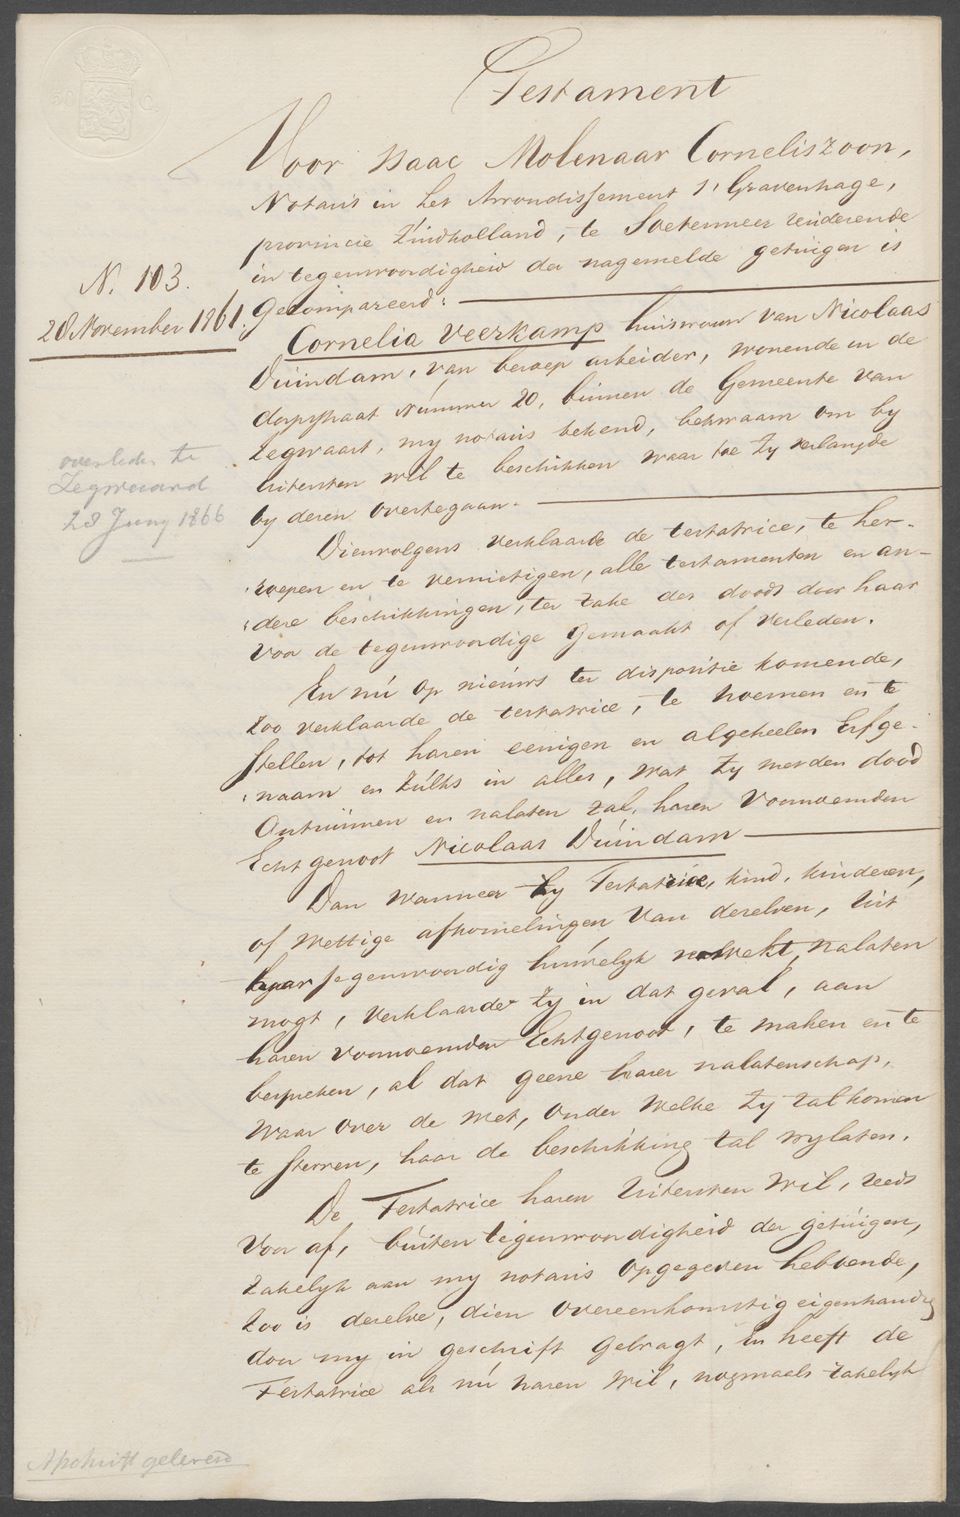 Testament
Voor Isaac Molenaar Corneliszoon,
Notaris in het Arrondissement 's Gravenhage,
provincie Zuidholland, te Soetermeer resideerende
in tegenwoordigheid der nagemelde getuigen is
Gecompareerd:
N. 103.
28 November 1861.
Cornelia Veerkamp huisvrouw van Nicolaas
Duindam, van beroep arbeider, wonende in de
dorpstraat Nummer 20, binnen de Gemeente van
Zegwaart, my notaris bekend, bekwaam om by
uitersten wil te beschikken waar toe zy verlangde
by deren overtegaan.
overleden te
Zegwaard
28 Juny 1866
Dienvolgens verklaarde de testatrice, te her-
roepen en te vernietigen, alle testamenten en an-
dere beschikkingen, ter zake des doods door haar
voor de tegenwoordige gemaakt of verleden.
En nú op nieuws ter dispositie komende,
zoo verklaarde de testatrice, te noemen en te
stellen, tot haren eenigen en algeheelen Erfge-
naam en zulks in alles, wat zy metden dood
Ontruimen en nalaten zal, haren voornoemden
Echtgenoot Nicolaas Duindam
Dan wanneer zy Testatrice, kind, kinderen,
of wettige afkomelingen van dezelven, uit
haar tegenwoordig huwelyk verwekt, nalaten
mogt, verklaarde zy in dat geval, aan
haren voornoemden Echtgenoot, te maken en te
bespreken, al dat geene harer nalatenschap,
waar over de wet, onder welke zy zal komen
te sterven, haar de beschikking zal vrylaten.
De Testatrice haren Uitersten wil, reeds
voor af, buiten tegenwoordigheid der getuigen,
zakelyk aan my notaris opgegeven hebbende,
zoo is dezelve, dien overeenkomstig eigenhandig
door my in geschrift gebragt, en heeft de
Testatrice als nu haren wil, nogmaals zakelyk
Afschrift geleverd